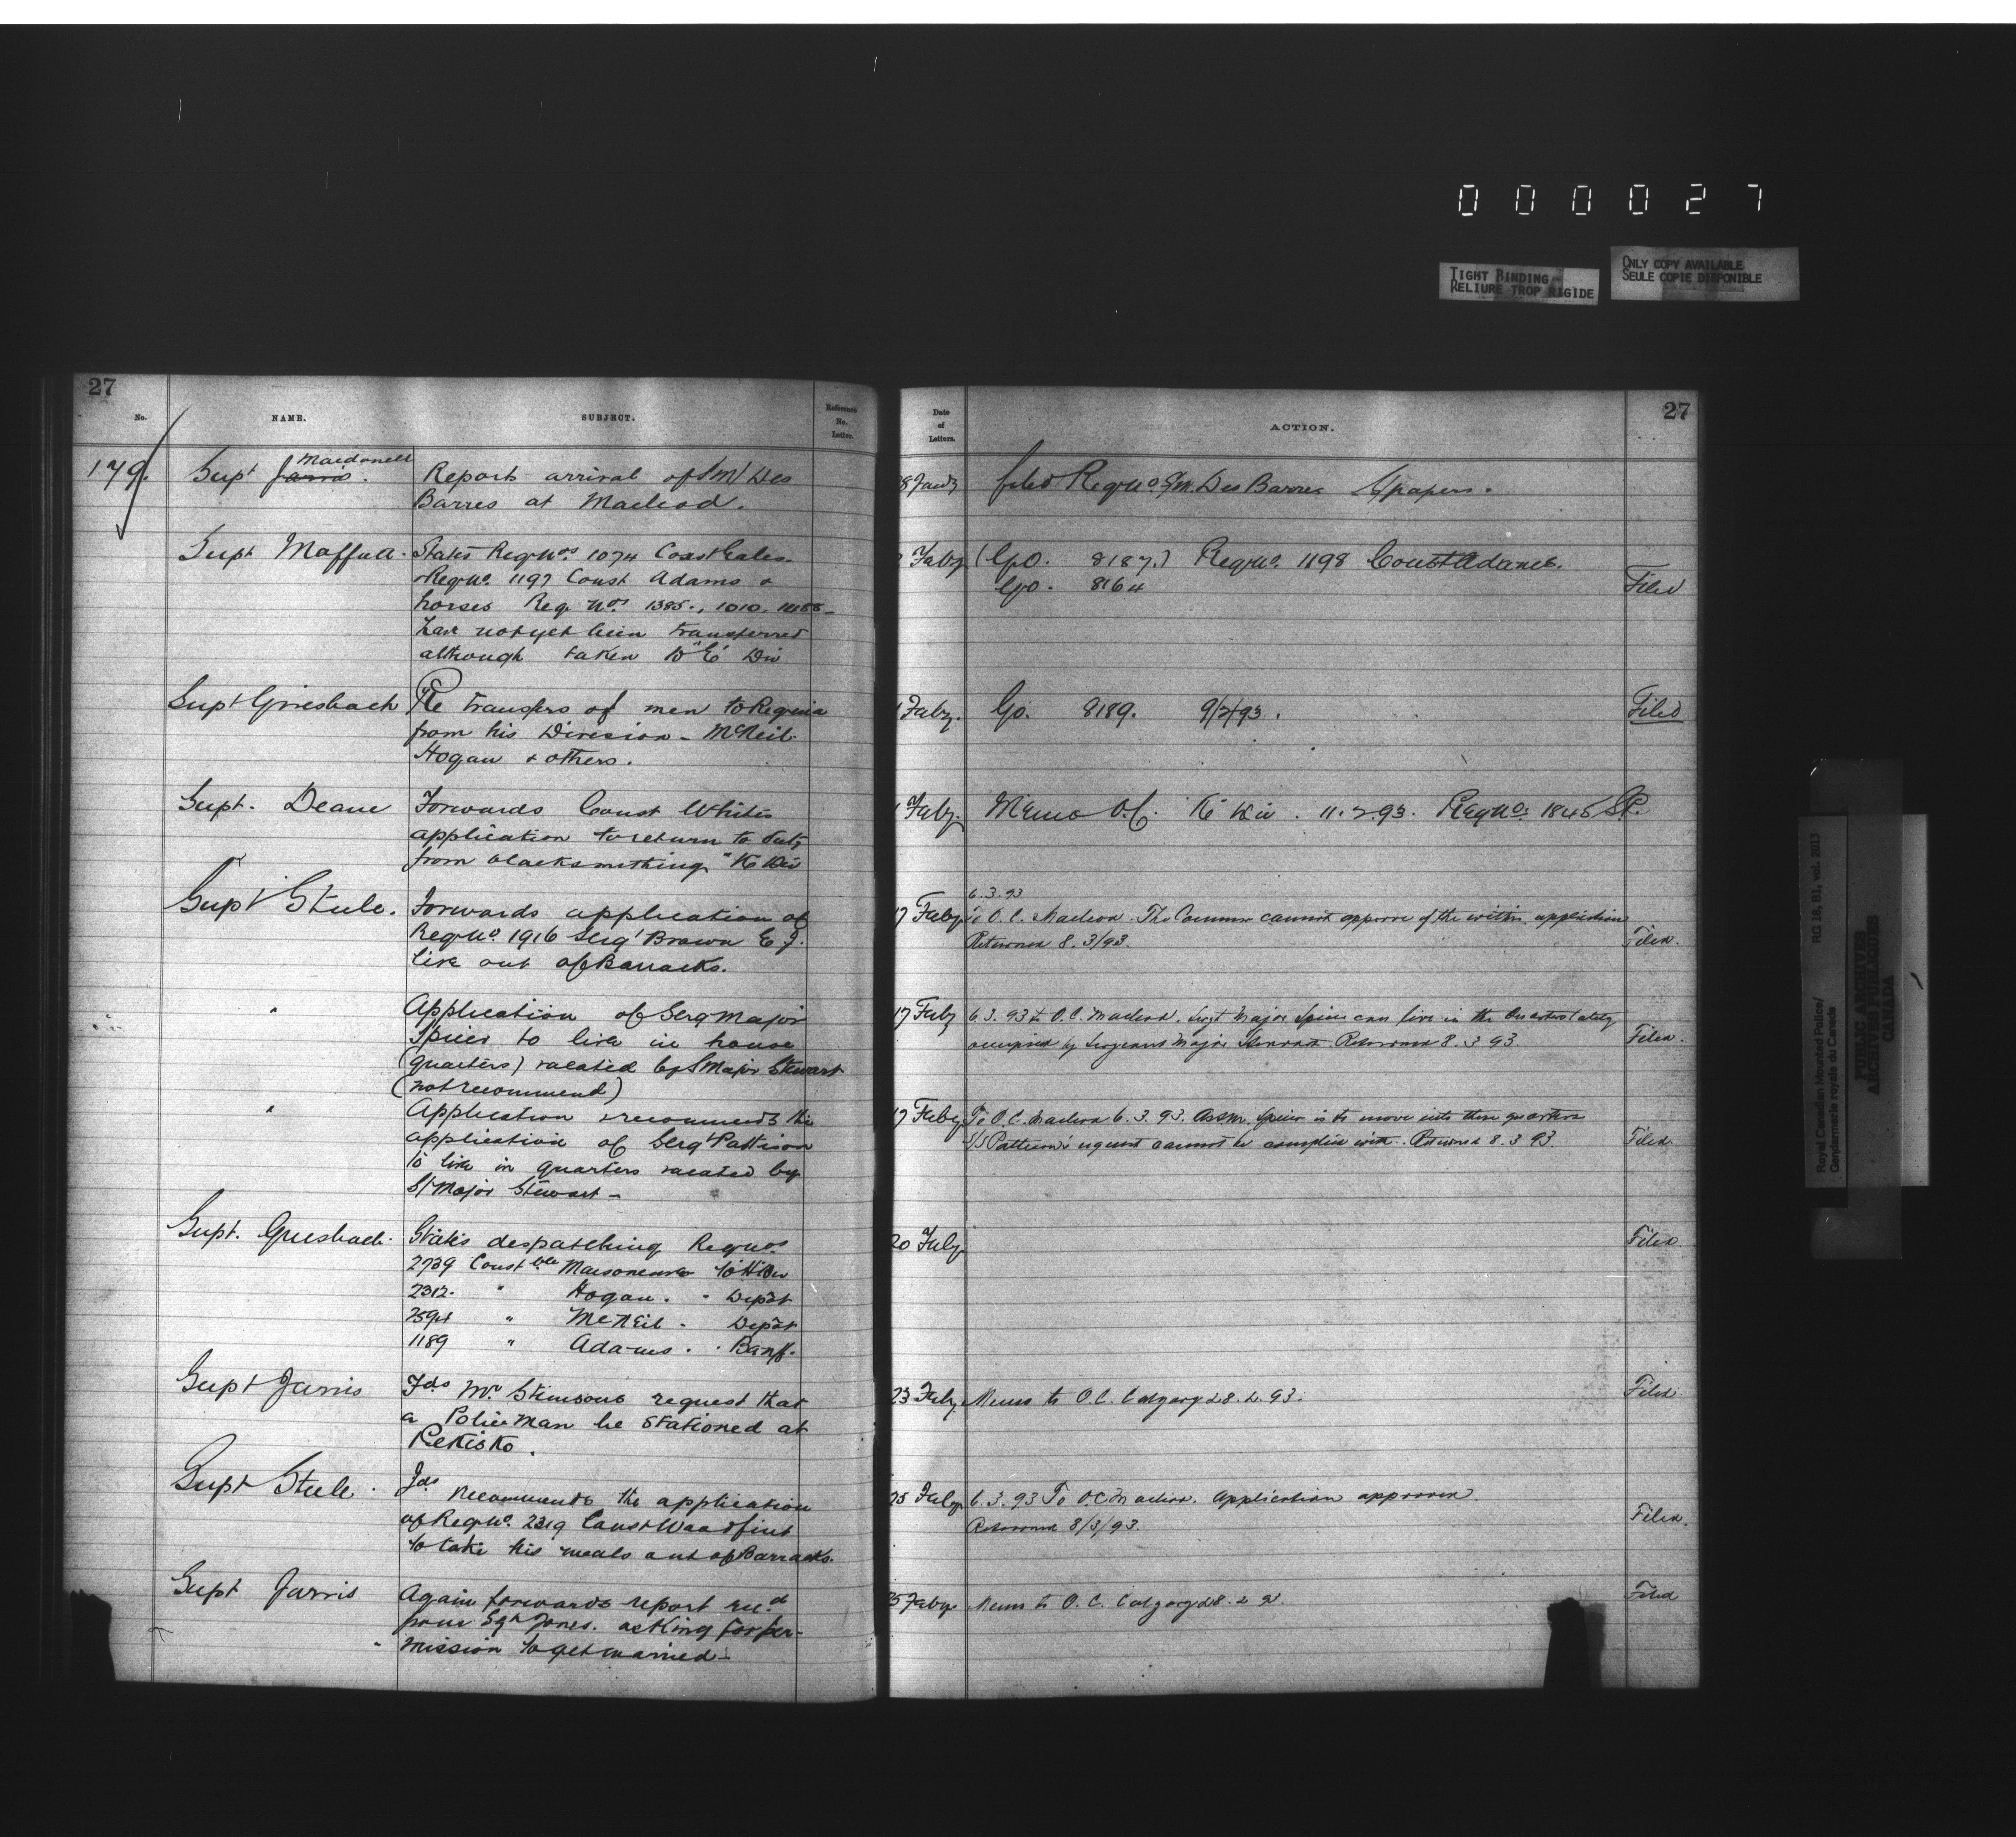 0 0 0 0 2 7
TIGHT BINDING
RELIURE TROP RIGIDE
ONLY COPY AVAILABLE
SEULE COPIE DISPONIBLE
27
No. NAME. SUBJECT. Reference No. Letter.
Date of Letters. ACTION. 27
179. Supt Jarvis. Macdonell
Reports arrival of S/M Des
Barres at Macleod.
8 Jany filed Reg No. S/M. Des Barres papers.
Supt Moffatt. States Reg Nos 1074 Const
+ Reg No. 1197 Const Adams &
horses Reg. Nos 1385., 1010.
have not yet been transferred
although taken to "E" Div
Faby (G.O. 8187.) Reg No. 1198 Const Adams.
G.O. 8164
Filed
Supt Griesbach Re transfers of men to Regina
from his Division - McNeil
Hogan & others.
1 Faby. G.O. 8189. 9/2/93.
Filed
Supt. Deane Forwards Const White's
application to return to duty
from blacksmithing "K" Div
1 Faby. Memo O.C. "K" Div. 11.2.93. Reg No. 1845
Supt Steele. Forwards application of
Reg No. 1916 Serg't Brown E.J.
live out of Barracks.
6.3.93
17 Faby To O.C. Macleod. The Commr cannot approve of the within application
Returned 8.3/93.
Filed.
" Application of Serg Major
Spicer to live in house
(quarters) vacated by S/Major Stewart
(not recommend)
17 Faby 6.3.93 to O.C. Macleod. Sergt Major Spicer can live in the Quarters lately
occupied by Sergeant Major Stewart. Returned 8.3.93.
Filed.
" Application & recommends the
application of Serg't Pattison
to live in quarters vacated by
S/Major Stewart -
17 Faby To O.C. Macleod 6.3.93. As S.M. Spicer is to move into these quarters
S/S Pattison's request cannot be complied with. Returned 8.3.93.
Filed.
Supt. Griesbach. States despatching Reg Nos
2739 Constble Maisoneuve to H Div
2312. " Hogan. " Depôt
2594 " McNeil - Depôt
1189 " Adams. " Banff.
20 Faby
Filed.
Supt Jarvis Fds Mr Stimsons request that
a Police Man be stationed at
Pekisko.
23 Faby. Memo to O.C. Calgary 28.2.93.
Filed
Supt Steele. Fds
recommends the application
of Reg No. 2319 Const Woodfint
to take his meals out of Barracks.
25 Faby 6.3.93 To O.C. Macleod. Application approved.
Returned 8/3/93.
Filed.
Supt Jarvis Again forwards report recd
from Sgt Jones. asking for per-
mission to get married -
25 Faby Memo to O.C. Calgary 28.2.
Filed
Royal Canadian Mounted Police/ RG 18, B1, vol. 2013
Gendarmerie royale du Canada
PUBLIC ARCHIVES
ARCHIVES PUBLIQUES
CANADA